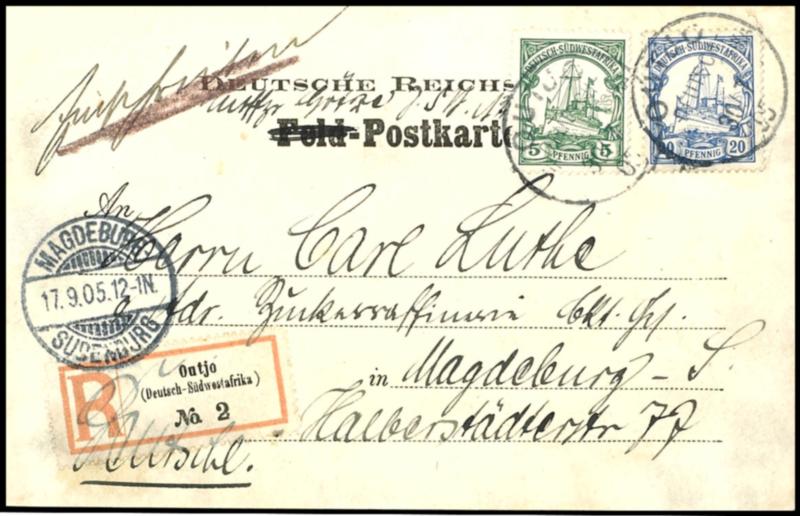 DEUTSCHE REICHS
Feld-Postkarte
DEUTSCH-SÜDWESTAFRIKA
5 PFENNIG 5
DEUTSCH-SÜDWESTAFRIKA
20 PFENNIG 20
An
Herrn Carl Luthe
Adr. Zuckerraffinerie
in Magdeburg - S.
Halberstädterstr 77
MAGDEBURG
17.9.05.12-1N.
SUDENBURG
R
Outjo
(Deutsch-Südwestafrika)
No. 2